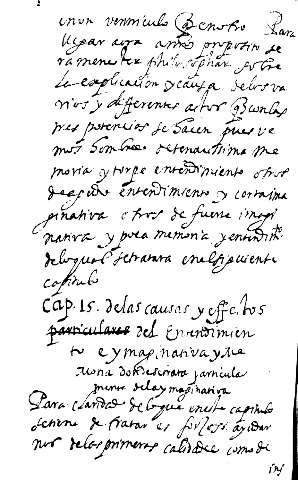 en un ventriculo Que no tro Para
llegar a ora a nr̃o proposito se
ra menester philosophar sobre
la explicacion y causa de los va
rios y differentes actos Q con las
tres potencias se hacen pues ve
mos hombres de tenacissima me
moria y torpe entendimiento otros
de agudo entendimiento y corta ima
ginativa otros de fuerte imagi
nativa y poca memoria y entendimto
de lo qual se tratara en el siguiente
capitulo
Cap. 15. de las causas y effectos
particulares del Entendimien
to e ymaginativa y me
moria donde se trata particula
mente de la ymaginativa
Para claridad de lo que en este capitulo
se tiene de tratar es forzoso ayudar
nos de las primeras calidades como di